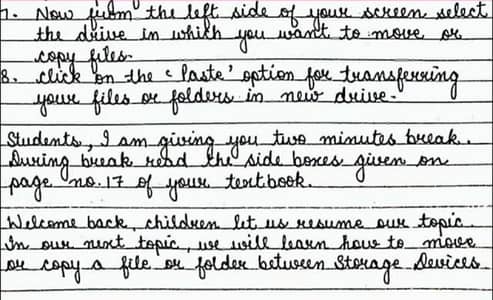 7. Now from the left side of your screen select
the drive in which you want to move or
copy files.
8. click on the 'Paste' option for transferring
your files or folders in new drive.
Students, I am giving you two minutes break.
During break read the side boxes given on
page no. 17 of your textbook.
Welcome back, children let us resume our topic.
In our next topic, we will learn how to move
or copy a file or folder between Storage Devices